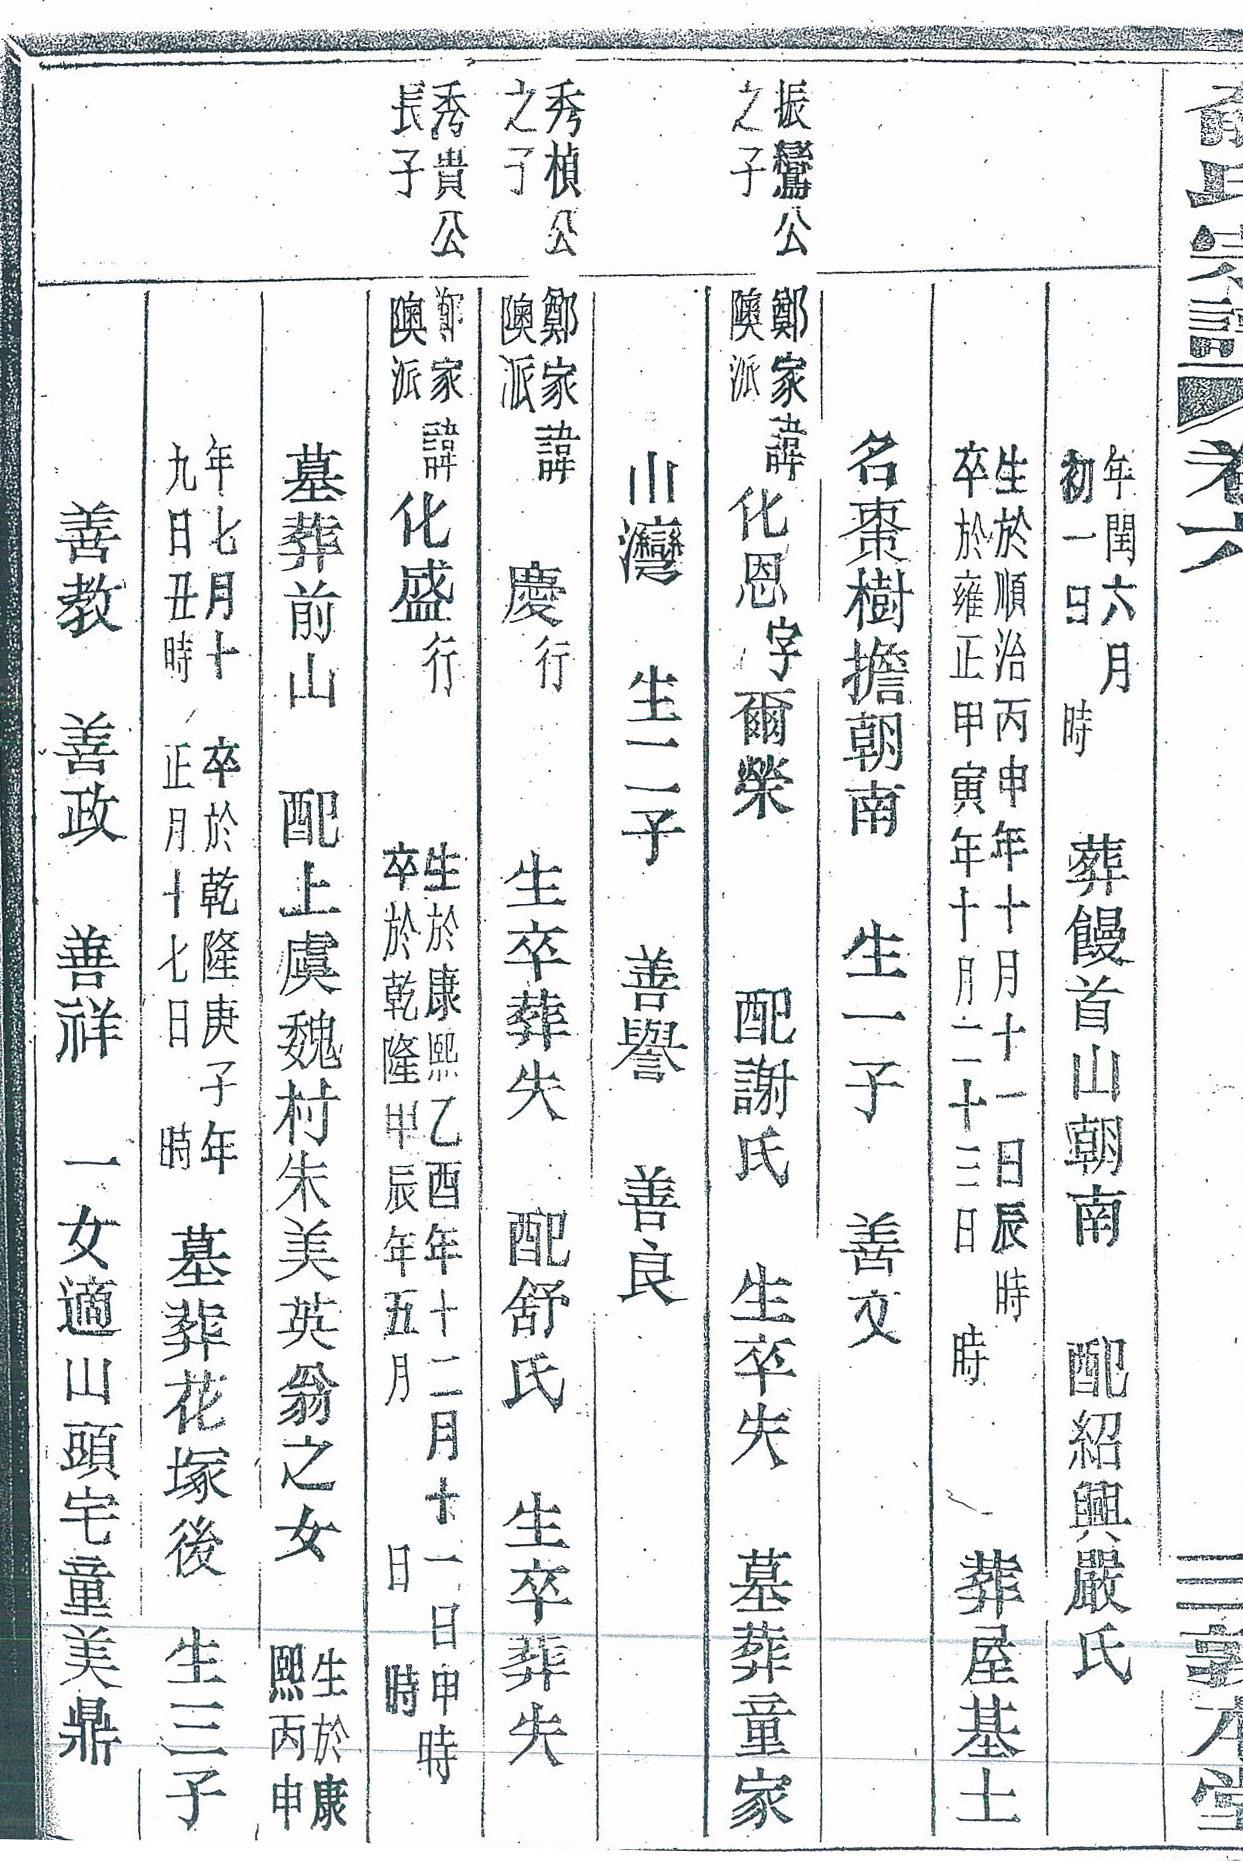 俞氏宗譜 卷六 三 敦本堂
年閏六月
初一日 時
葬饅首山朝南 配紹興嚴氏
生於順治丙申年十月十一日辰時
卒於雍正甲寅年十月二十三日 時
葬屋基土
名棗樹擔朝南 生一子 善文
振鸞公
之子
鄭家
隩派
諱化恩字爾榮 配謝氏 生卒失 墓葬童家
山灣 生二子 善譽 善良
秀楨公
之子
鄭家
隩派
諱 慶行 生卒葬失 配舒氏 生卒葬失
秀貴公
長子
鄭家
隩派
諱化盛行
生於康熙乙酉年十二月十一日申時
卒於乾隆甲辰年五月 日 時
墓葬前山 配上虞魏村朱美英翁之女
生於康
熙丙申
年七月十
九日丑時
卒於乾隆庚子年
正月十七日 時
墓葬花塚後 生三子
善教 善政 善祥 一女適山頭宅童美鼎